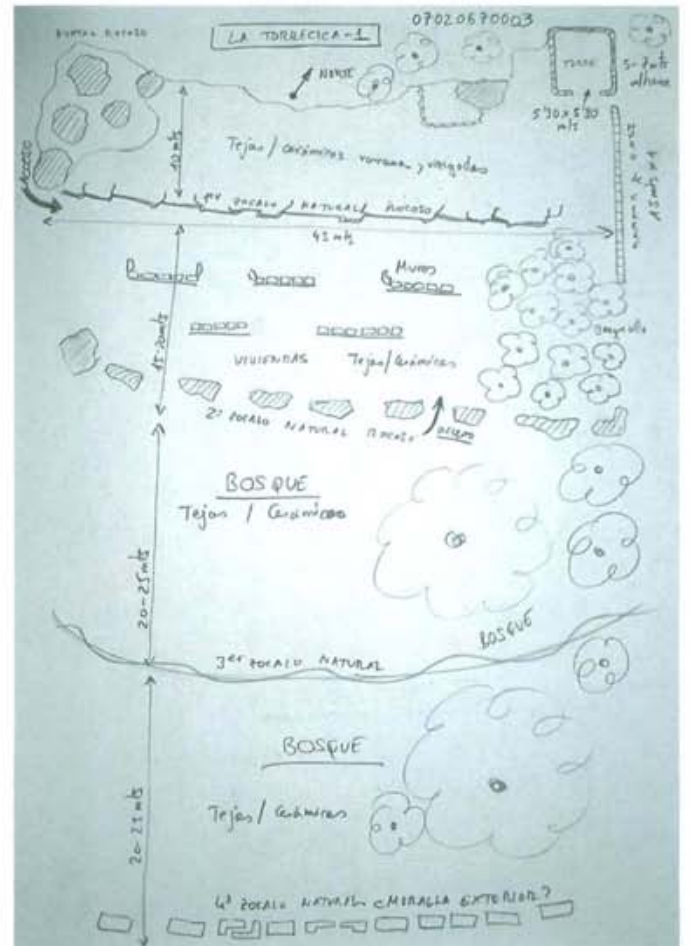 07020670003
LA TORRECICA-1
NORTE
TORRE
5-7 mts
altura
5'30 x 5'30
mts
10 mts
Tejas / cerámicas romana y visigodas
ACCESO
1er ZOCALO NATURAL ROCOSO
45 mts
Muros
15-20 mts
VIVIENDAS
Tejas/Cerámicas
2º ZOCALO NATURAL ROCOSO
ACCESO
BOSQUE
Tejas / Cerámicas
20-25 mts
BOSQUE
3er ZOCALO NATURAL
BOSQUE
Tejas / Cerámicas
20-25 mts
4º ZOCALO NATURAL ¿MURALLA EXTERIOR?